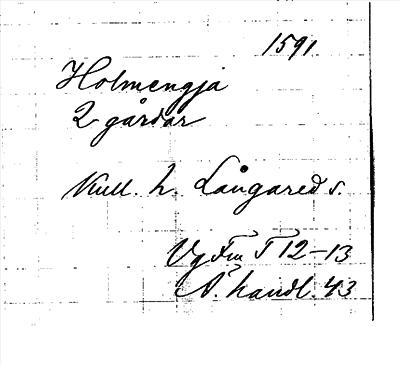 1591
Holmengja
2 gårdar
Kull. h. Långared s.
Vg Fru T 12-13
Ä. handl. 43